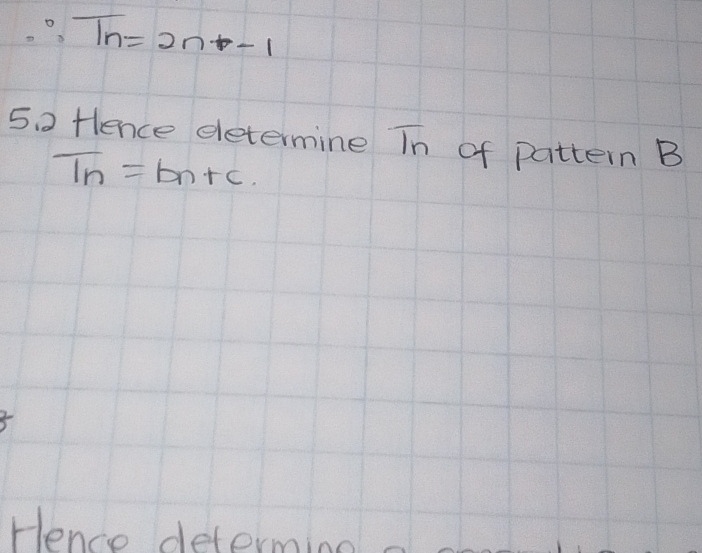 ∴ Tn = 2n + -1
5.2 Hence determine Tn of pattern B
Tn = bn + c.
Hence determine a